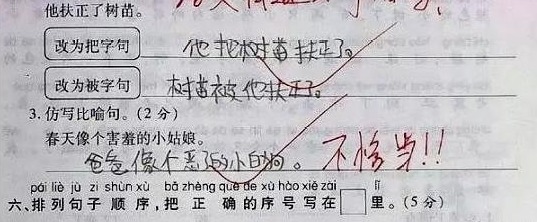 他扶正了树苗。
改为把字句 他把树苗扶正了。
改为被字句 树苗被他扶正了。
3.仿写比喻句。(2分)
春天像个害羞的小姑娘。
爸爸像个恶的小白狗。 不恰当!!
pái liè jù zi shùn xù bǎ zhèng què de xù hào xiě zài lǐ
六、排列句子顺序,把正确的序号写在□里。(5分)